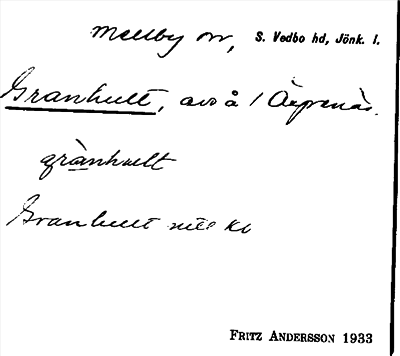 Mellby sn, S. Vedbo hd, Jönk. l.
Granhult, avs å
grànhult
Granhult
FRITZ ANDERSSON 1933